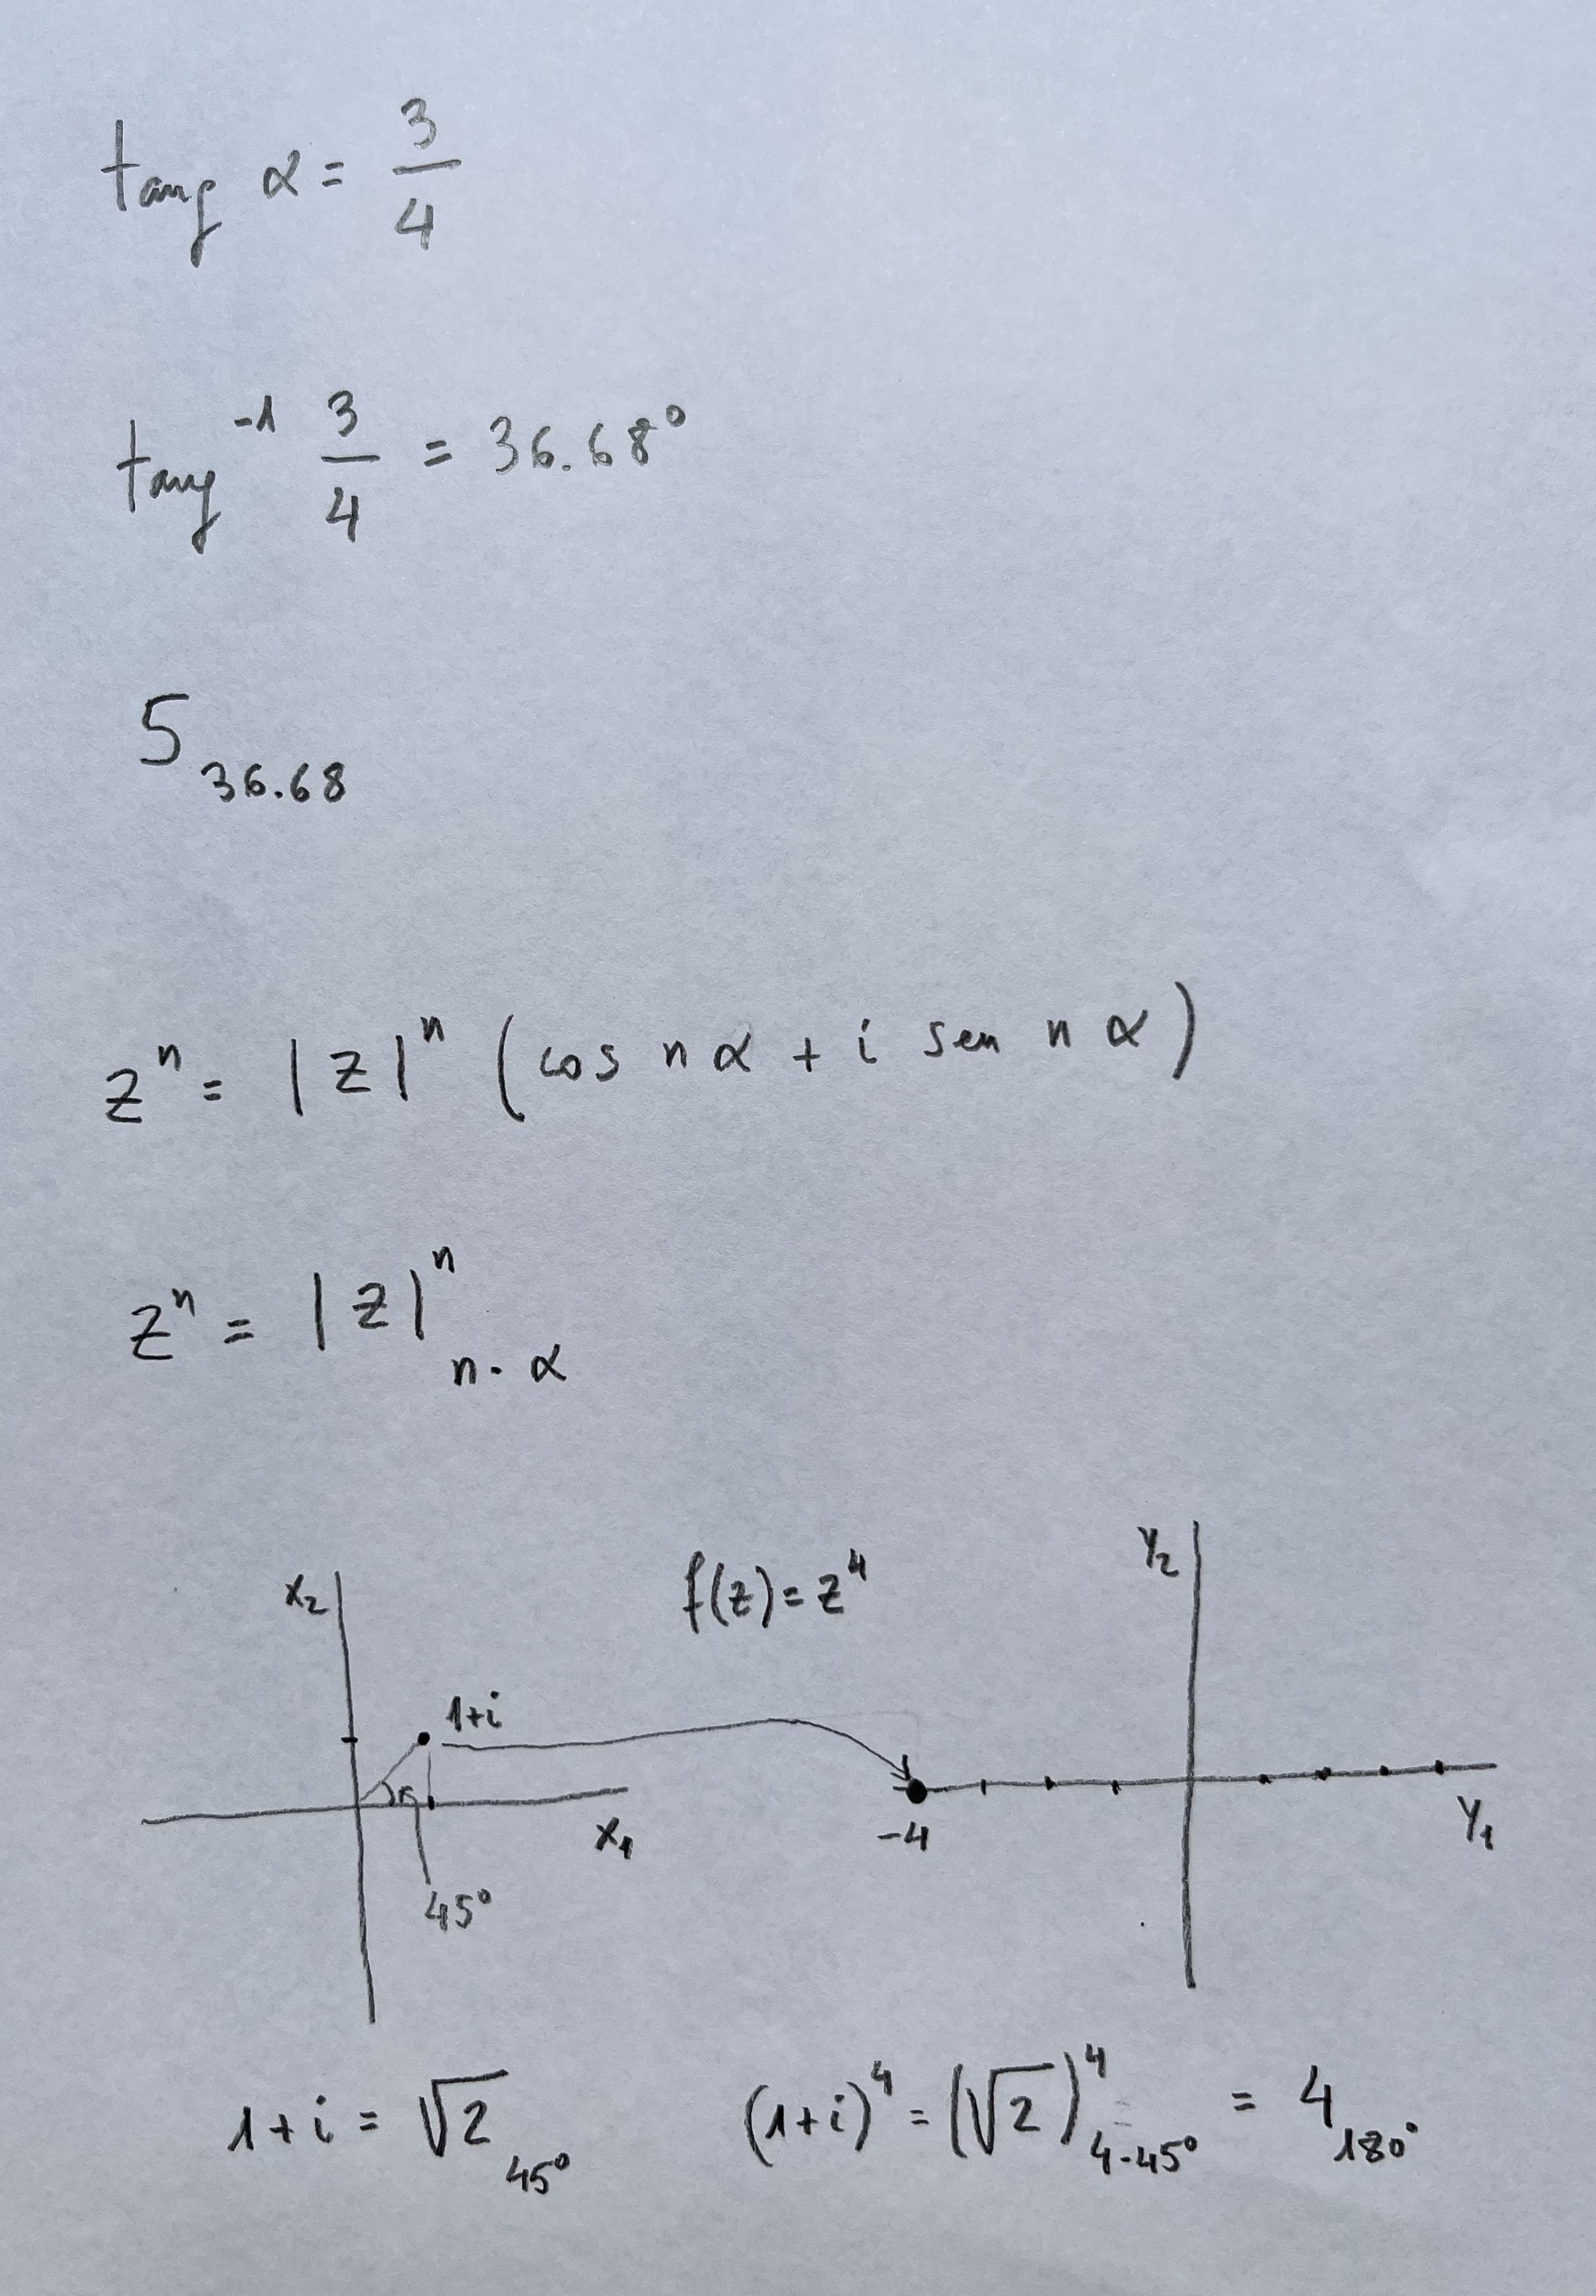 tang α = 3/4
tang⁻¹ 3/4 = 36.68°
5₃₆.₆₈
zⁿ = |z|ⁿ (cos n α + i sen n α)
zⁿ = |z|ⁿ n · α
x₂ f(z) = z⁴ y₂
1+i
x₁ -4 y₁
45°
1+i = √2 45° (1+i)⁴ = (√2)⁴ 4·45° = 4 180°